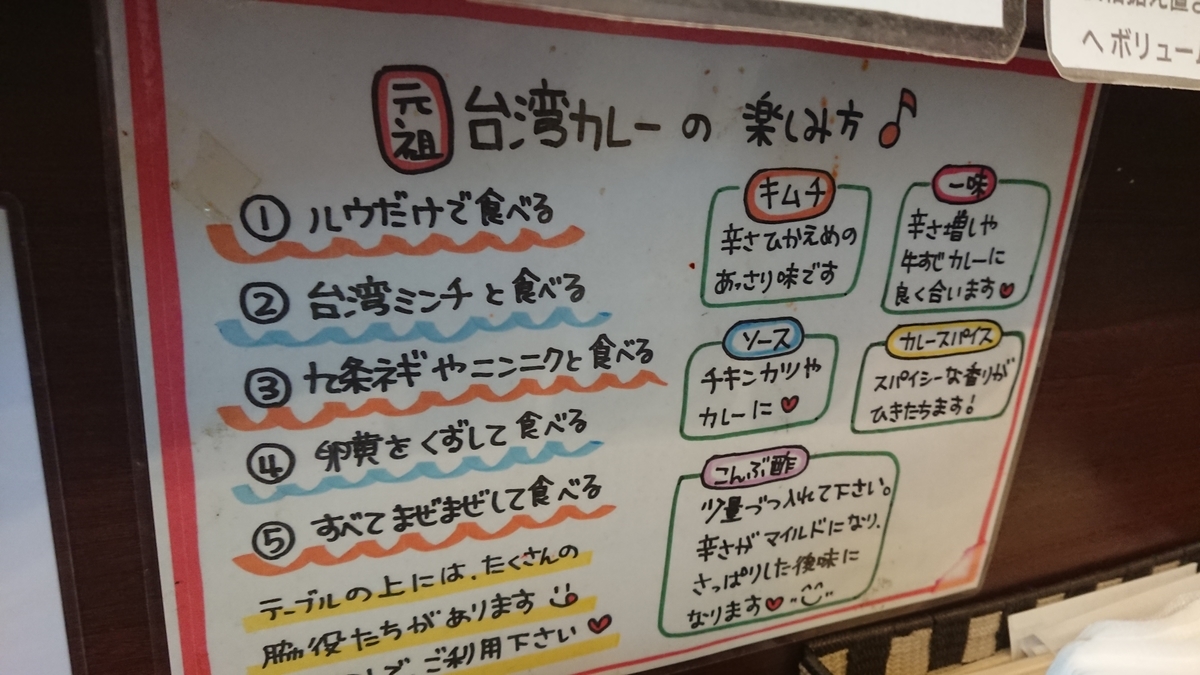 元祖 台湾カレーの楽しみ方♪
① ルウだけで食べる
② 台湾ミンチと食べる
③ 九条ネギやニンニクと食べる
④ 卵黄をくずして食べる
⑤ すべてまぜまぜして食べる
テーブルの上には、たくさんの
脇役たちがあります
ご利用下さい♥
キムチ
辛さひかえめの
あっさり味です
一味
辛さ増しや
牛すじカレーに
良く合います♥
ソース
チキンカツや
カレーに♥
カレースパイス
スパイシーな香りが
ひきたちます!
こんぶ酢
少量づつ入れて下さい。
辛さがマイルドになり、
さっぱりした後味に
なります♥
へボリューム